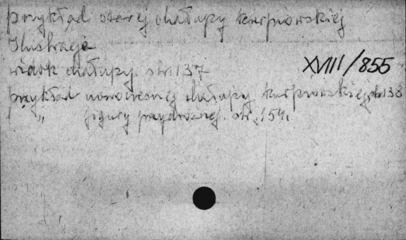 przykład starej chałupy kurpiowskiej
Ilustracje
widok chałupy. str. 137
XVIII/855
przykład nowoczesnej chałupy kurpiowskiej, str. 138
" figury przydrożnej. str. 154.